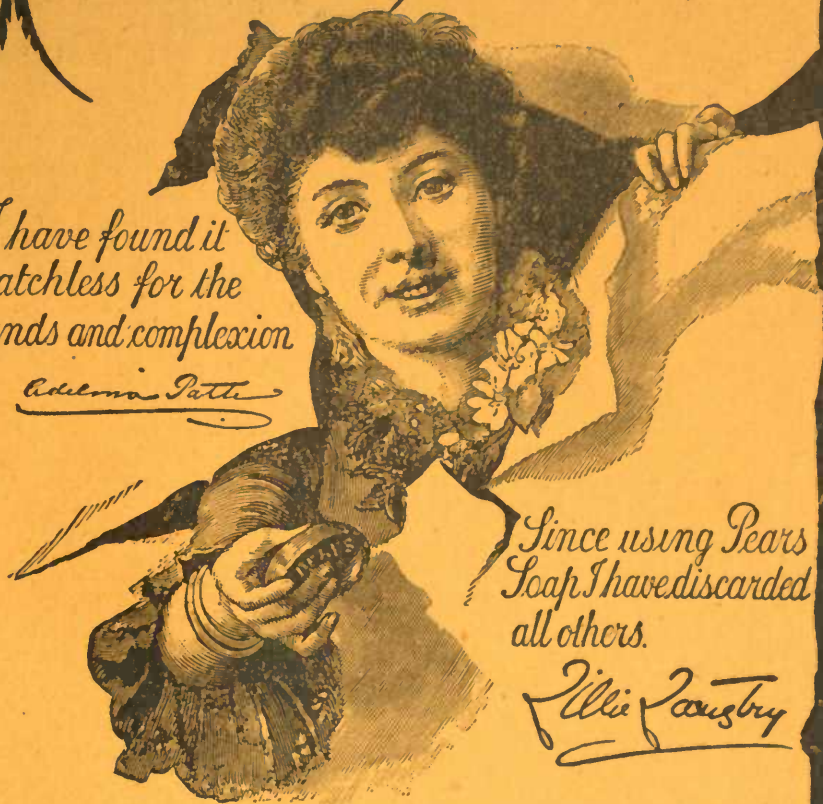 I have found it
atchless for the
nds and complexion
Adelina Patti
PEARS
Since using Pears
Soap I have discarded
all others.
Lillie Langtry